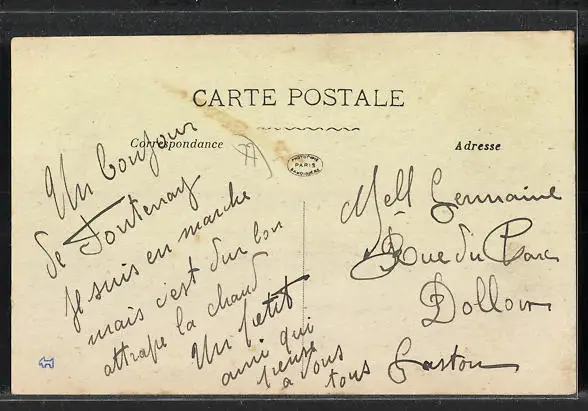 CARTE POSTALE
Correspondance
Adresse
77
PARIS
Un bonjour
de Fontenay
je suis en marche
mais c'est dur l'on
attrape la chaud
Un petit
ami qui
pense
a vous
tous
Gaston
Mell Germaine
Rue du Parc